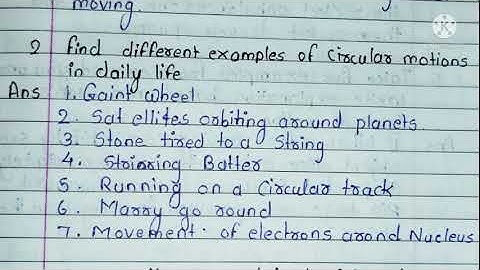 moving.
2 find different examples of Circular motions
in daily life
Ans 1. Gaint wheel
2. Sat ellites orbiting around planets.
3. Stone tired to a String
4. Stirring Batter
5. Running on a Circular track
6. Marry go round
7. Movement. of electrons arond Nucleus